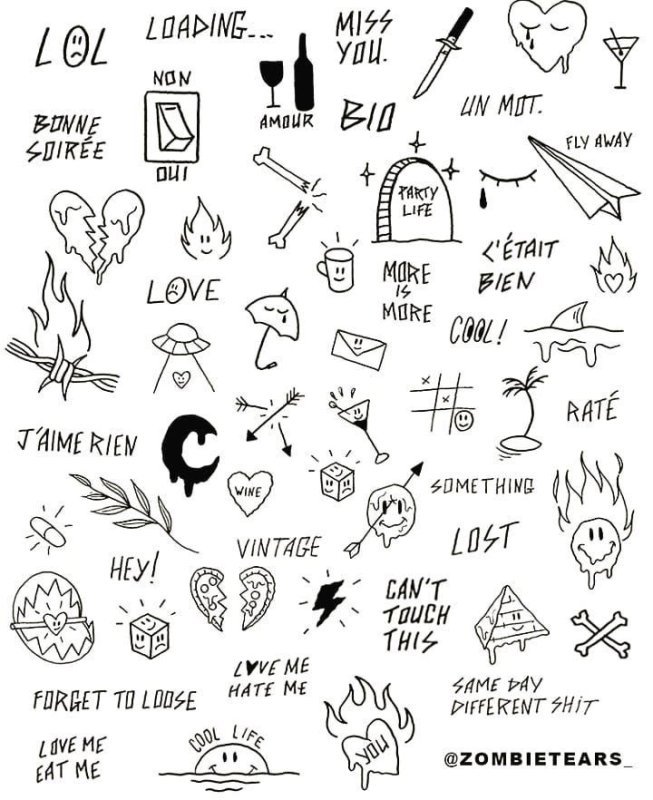 LOL
LOADING...
MISS
YOU.
NON
OUI
AMOUR
BIO
UN MOT.
BONNE
SOIRÉE
FLY AWAY
PARTY
LIFE
C'ÉTAIT
BIEN
LOVE
MORE
IS
MORE
COOL!
RATÉ
J'AIME RIEN
WINE
SOMETHING
VINTAGE
LOST
HEY!
CAN'T
TOUCH
THIS
LOVE ME
HATE ME
FORGET TO LOOSE
SAME DAY
DIFFERENT SHIT
LOVE ME
EAT ME
COOL LIFE
YOU
@ZOMBIETEARS_